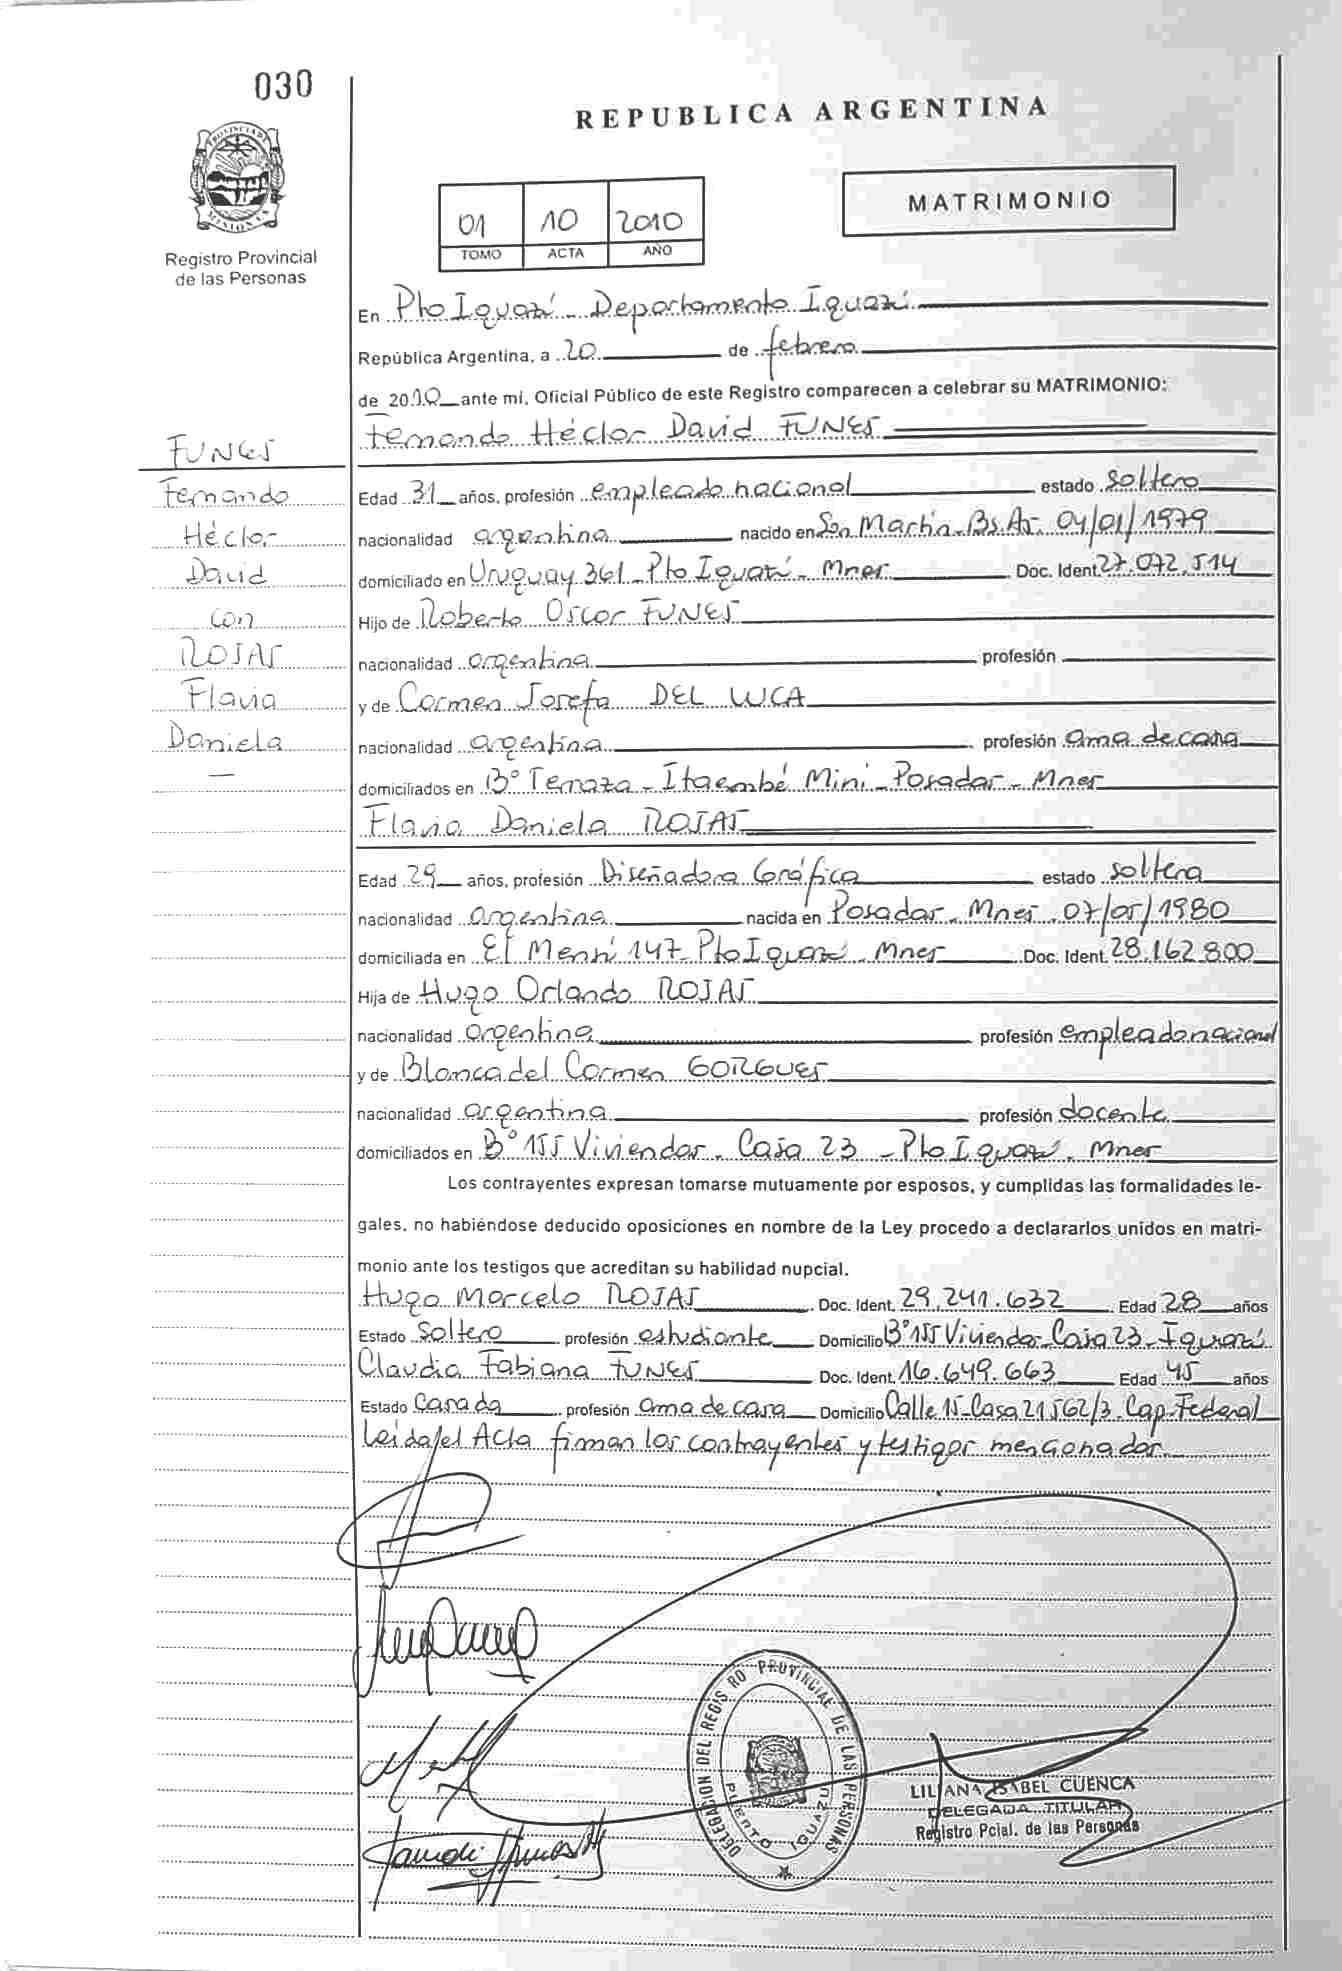 030
REPUBLICA ARGENTINA
PROVINCIA DE MISIONES
Registro Provincial
de las Personas
01 10 2010
TOMO ACTA AÑO
MATRIMONIO
En Pto Iguazú - Departamento Iguazú
República Argentina, a 20 de febrero
de 2010 ante mí, Oficial Público de este Registro comparecen a celebrar su MATRIMONIO:
Fernando Héctor David FUNES
FUNES
Fernando
Héctor
David
con
ROJAS
Flavia
Daniela
Edad 31 años, profesión empleado nacional estado soltero
nacionalidad argentina nacido en San Martín - Bs.As. 04/01/1979
domiciliado en Uruguay 361 - Pto Iguazú - Mnes Doc. Ident. 27.072.514
Hijo de Roberto Oscar FUNES
nacionalidad argentina profesión
y de Carmen Josefa DEL LUCA
nacionalidad argentina profesión ama de casa
domiciliados en B° Terraza - Itaembé Mini - Posadas - Mnes
Flavia Daniela ROJAS
Edad 29 años, profesión Diseñadora Gráfica estado soltera
nacionalidad argentina nacida en Posadas - Mnes - 07/05/1980
domiciliada en El Mensú 147 - Pto Iguazú - Mnes Doc. Ident. 28.162.800
Hija de Hugo Orlando ROJAS
nacionalidad argentina profesión empleado nacional
y de Blanca del Carmen GORGUES
nacionalidad argentina profesión docente
domiciliados en B° 155 Viviendas - Casa 23 - Pto Iguazú - Mnes
Los contrayentes expresan tomarse mutuamente por esposos, y cumplidas las formalidades le-
gales, no habiéndose deducido oposiciones en nombre de la Ley procedo a declararlos unidos en matri-
monio ante los testigos que acreditan su habilidad nupcial.
Hugo Marcelo ROJAS Doc. Ident. 29.241.632 Edad 28 años
Estado Soltero profesión estudiante Domicilio B° 155 Vivienda - Casa 23 - Iguazú
Claudia Fabiana FUNES Doc. Ident. 16.649.663 Edad 45 años
Estado Casada profesión ama de casa Domicilio Calle 15 - Casa 21562/3 - Cap. Federal
Leída el Acta firman los contrayentes y testigos mencionados
DELEGACION DEL REGISTRO PROVINCIAL DE LAS PERSONAS
PUERTO IGUAZU
LILIANA ISABEL CUENCA
DELEGADA TITULAR
Registro Pcial. de las Personas